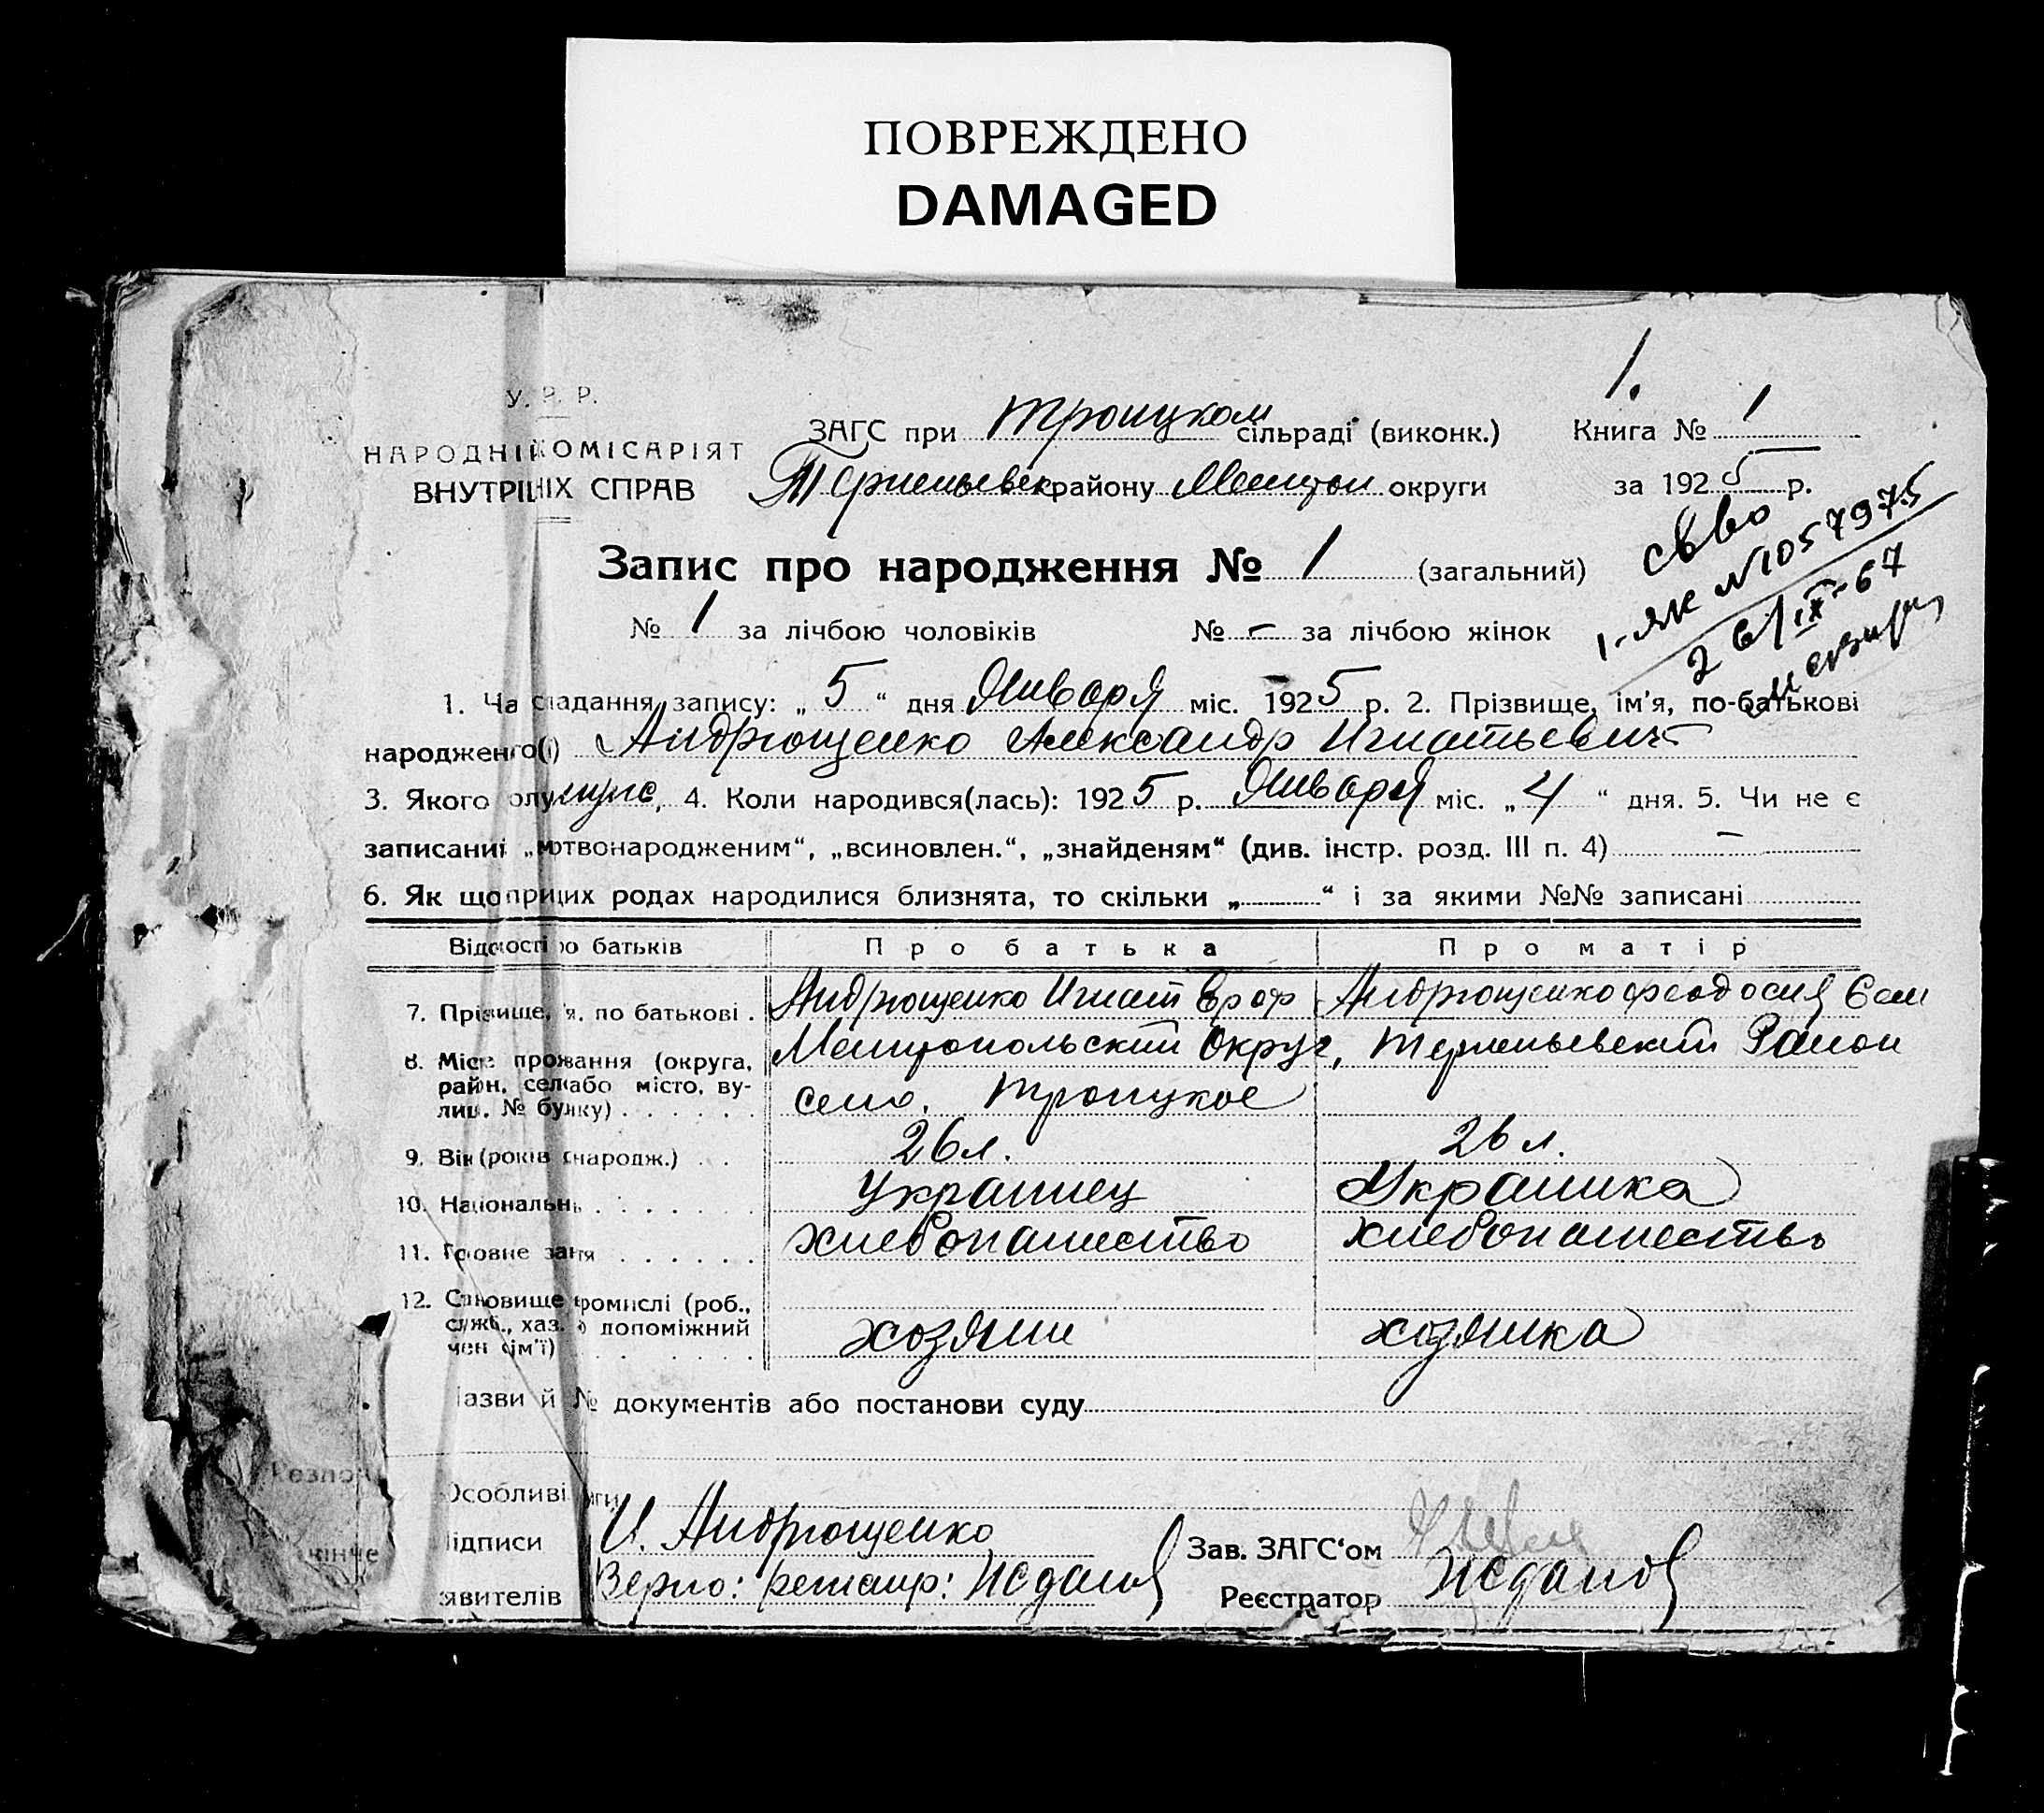 ПОВРЕЖДЕНО
DAMAGED
1.
У. Р. Р.
НАРОДНІ КОМІСАРІЯТ
ВНУТРІШНІХ СПРАВ
ЗАГС при Троицком сільраді (виконк.) Книга № 1
району Мелитоп округи за 1925 р.
Запис про народження № 1 (загальний)
№ 1 за лічбою чоловіків № - за лічбою жінок
св во
1-як № 1057975
26/IX-67
1. Ча складання запису: „ 5 “ дня Января міс. 1925 р. 2. Прізвище, ім'я, по-батькові
народженого(ї) Андрющенко Александр Игнатьевич
3. Якого полу муж, 4. Коли народився(лась): 1925 р. Января міс. „ 4 “ дня. 5. Чи не є
записаний „мертвонародженим“, „всиновлен.“, „знайденям“ (див. інстр. розд. III п. 4) -
6. Як що при цих родах народилися близнята, то скільки „ “ і за якими №№ записані
Відомості про батьків Про батька Про матір
7. Прізвище, ім'я, по батькові . Андрющенко Игнат Ероф Андрющенко Феодосия Сем
8. Місце проживання (округа, Мелитопольский Округ, Терпеньевский Район
район, село або місто, ву-
лиця, № будинку) . . . . . . село. Троицкое
9. Вік (років народж.) . . 26 л. 26 л.
10. Національн . . . . . . . Украинец Украинка
11. Головне заняття . . . . . . хлебопашество хлебопашество
12. Становище в промислі (роб.,
служб., хаз. допоміжний хозяин хозяйка
член сім'ї) . . . . . .
Назви й № документів або постанови суду
Особливі
Підписи И. Андрющенко Зав. ЗАГС‘ом
явителів Верно: регистр: Жданов Реєстратор Жданов